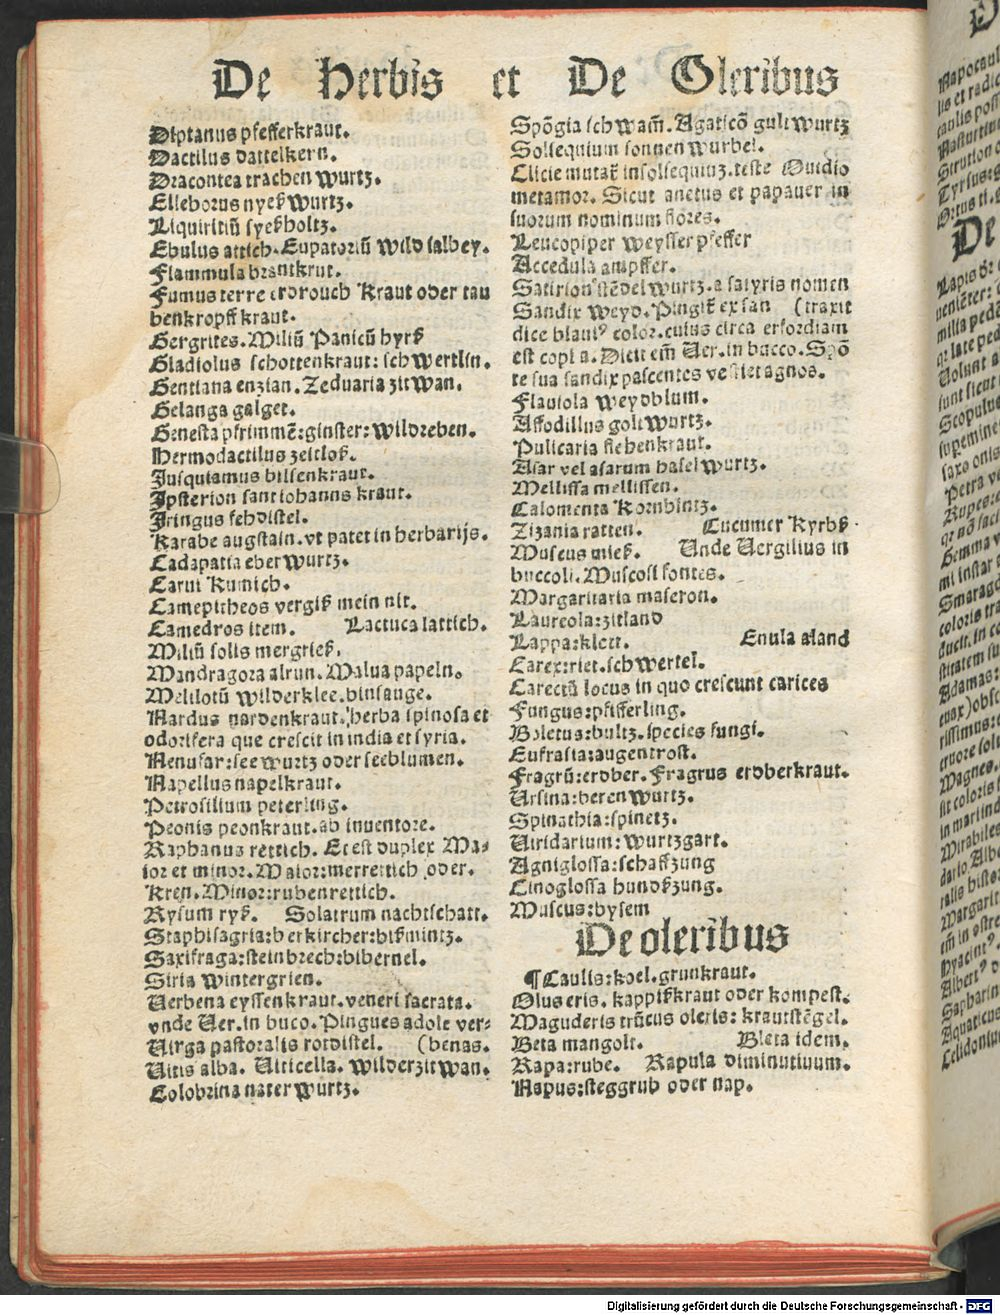 De Herbis et De Oleribus
Diptanus pfefferkraut.
Dactilus dattelkern.
Dracontea trachen wurtz.
Elleborus nyeß wurtz.
Liquiritiū syeßholtz.
Ebulus attich. Eupatoriū wild salbey.
Flammula brantkrut.
Fumus terre erdrouch kraut oder tau
benkropff kraut.
Gergrites. Miliū Panicū hyrß
Gladiolus schottenkraut: schwertlin.
Gentiana enzian. Zeduaria zitwan.
Gelanga galget.
Genesta pfrimmē: ginster: wildreben.
Hermodactilus zeitloß.
Jusquiamus bilsenkraut.
Ipsterion sant iohanns kraut.
Iringus fehdistel.
Karabe augstain. vt patet in herbarijs.
Cadapatia eber wurtz.
Carui kumich.
Camepitheos vergiß mein nit.
Camedros item. Lactuca lattich.
Miliū solis mergrieß.
Mandragora alrun. Malua papeln.
Mellilotū wilderklee. binsauge.
Nardus nardenkraut. herba spinosa et
odorifera que crescit in india et syria.
Nenufar: see wurtz oder seeblumen.
Napellus napelkraut.
Petrosilium peterling.
Peonis peonkraut. ab inuentore.
Raphanus rettich. Et est duplex Ma-
ior et minor. Maior: merrettich oder.
kren. Minor: rubenrettich.
Rysum ryß. Solatrum nachtschatt.
Staphisagria: berkircher: bißmintz.
Saxifraga: steinbrech: bibernel.
Siria wintergrien.
Verbena eyssenkraut. veneri sacrata.
vnde Uer. in buco. Pingues adole ver-
Uirga pastoralis rotdistel. (benas.
Uitis alba. Uiticella. wilderzitwan.
Colobrina nater wurtz.
Spōgia schwam̄. Agaticō gult wurtz
Sollequium sonnen wurbel.
Clicie mutat in sollequiuz. teste Ouidio
metamor. Sicut anetus et papauer in
suorum nominum flores.
Leucopiper weysser pfeffer
Accedula ampffer.
Satirion stēdel wurtz. a satyris nomen
Sandix weyd. Pingit ex san (traxit
dice blaui⁹ color. cuius circa erfordiam
est copia. Dicit em̄ Uer. in bucco. Spō
te sua sandix pascentes vestiet agnos.
Flauiola weydblum.
Affodillus golt wurtz.
Pulicaria flehenkraut.
Asar vel asarum hasel wurtz.
Mellissa mellissen.
Calomenta kornbintz.
Zizania ratten. Cucumer kyrbß.
Muscus mieß. Unde Uergilius in
buccoli. Muscosi fontes.
Margaritaria maseron.
Laureola: zitland
Lappa: klett. Enula aland
Carex: riet. schwertel.
Carectū locus in quo crescunt carices
Fungus: pfifferling.
Boletus: bultz. species fungi.
Eufrasia: augentrost.
Fragrū: erdber. Fragrus erdberkraut.
Ursina: beren wurtz.
Spinathia: spinetz.
Uiridarium: wurtzgart.
Agniglossa: schaffzung
Cinoglossa hundßzung.
Muscus: bysem
De oleribus
¶ Caulis: koel. grunkraut.
Olus eris. kappißkraut oder kompest.
Maguderis trūcus oleris: krautstēgel.
Beta mangolt. Bleta idem.
Rapa: rube. Rapula diminutiuum.
Napus: steggrub oder nap.
Digitalisierung gefördert durch die Deutsche Forschungsgemeinschaft - DFG